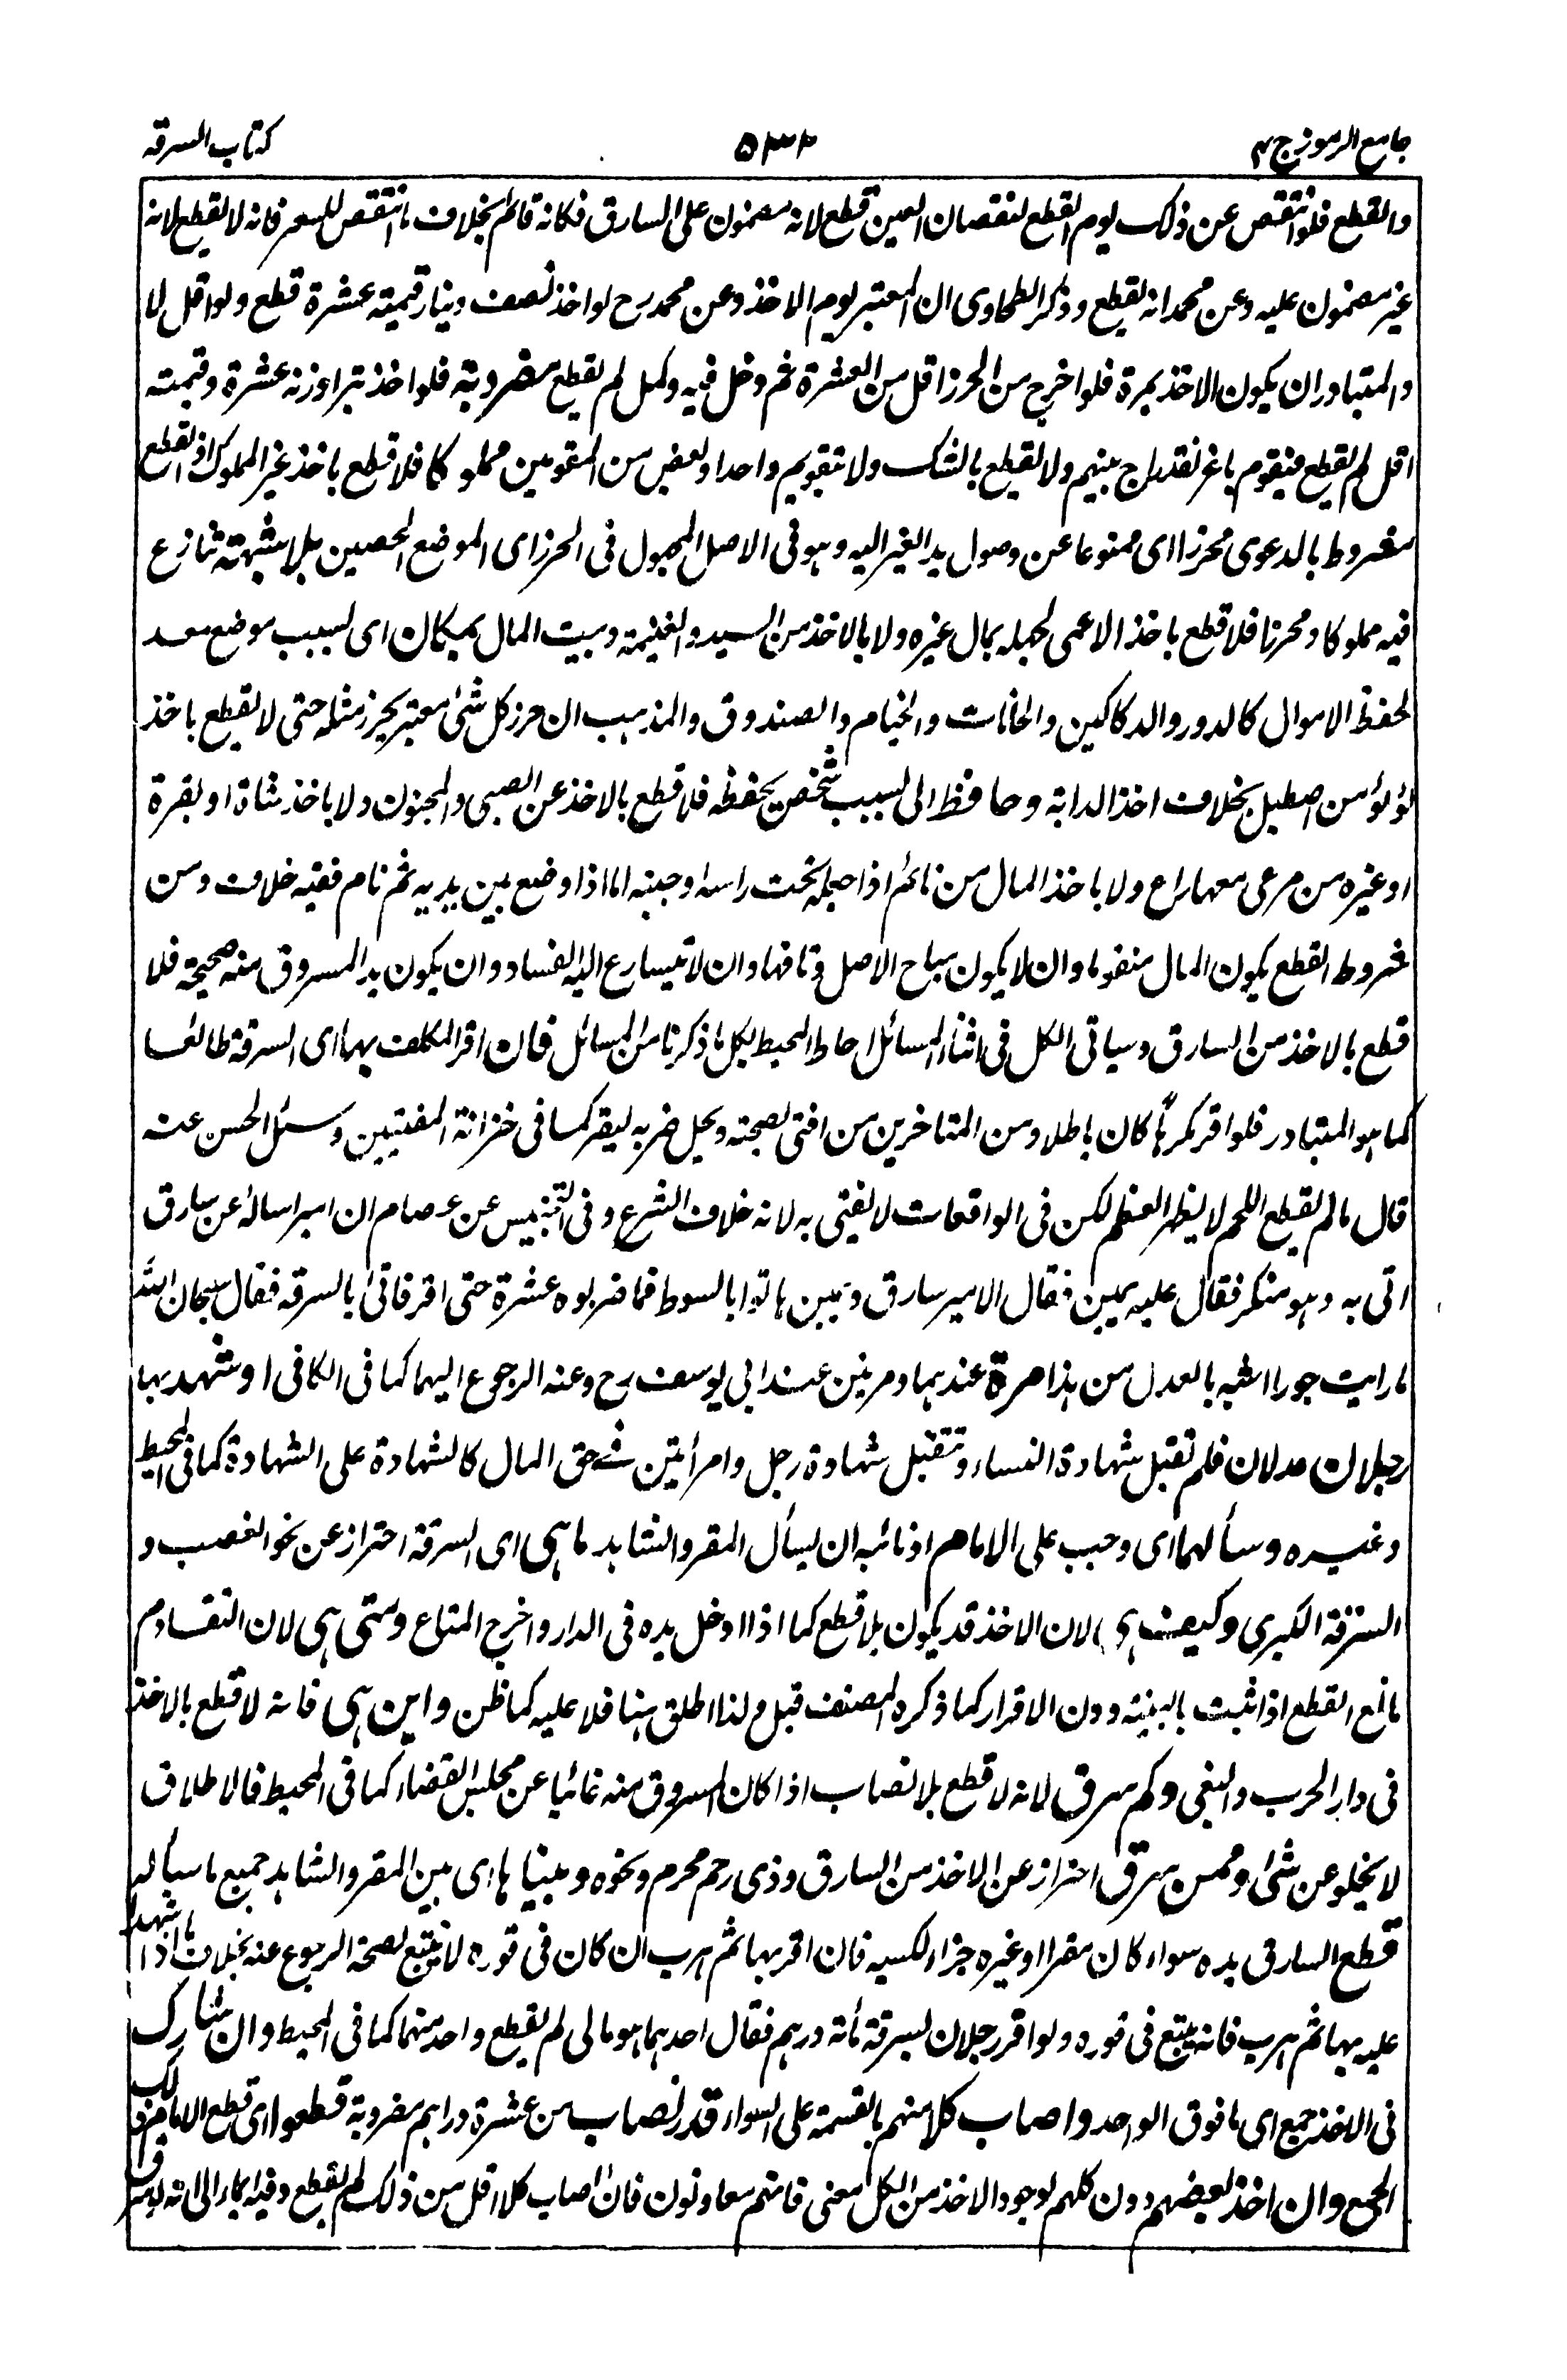 جامع الرموز ج ٢
٥٣٢
كتاب السرقة
والقطع فلو انتقص عن ذلك يوم القطع لنقصان العين قطع لانه مضمون على السارق فكانه قائم بخلاف ما انتقص للسعر فانه لا يقطع لانه
غير مضمون عليه وعن محمد انه يقطع وذكر الطحاوى ان المعتبر يوم الاخذ وعن محمد رح لو اخذ نصف دينار قيمته عشرة قطع ولو اقل لا
والمتبادر ان يكون الاخذ بمرة فلو اخرج من الحرز اقل من العشرة ثم دخل فيه وكمل لم يقطع مضروبة فلو اخذ تبرا وزنه عشرة وقيمته
اقل لم يقطع فيقوم باعز نقد راج بينهم ولا يقطع بالشك ولا بتقويم واحد او بعض من المقومين مملوكا فلا قطع باخذ غير المملوك اذ القطع
مشروط بالدعوى محرزا اى ممنوعا عن وصول يد الغير اليه وهو فى الاصل المجعول فى الحرز اى الموضع الحصين بلا شبهة تنازع
فيه مملوكا ومحرزا فلا قطع باخذ الاعمى لجهله بمال غيره ولا بالاخذ من السيد والغنيمة وبيت المال بمكان اى بسبب موضع معد
لحفظ الاموال كالدور والدكاكين والخانات والخيام والصندوق والمذهب ان حرز كل شئ معتبر بحرز مثله حتى لا يقطع باخذ
لؤلؤ من اصطبل بخلاف اخذ الدابة وحافظ اى بسبب شخص يحفظه فلا قطع بالاخذ عن الصبى والمجنون ولا باخذ شاة او بقرة
او غيره من مرعى معها راع ولا باخذ المال من نائم اذا جعله تحت راسه او جنبه اما اذا وضع بين يديه ثم نام ففيه خلاف ومن
شروط القطع يكون المال منقولا وان لا يكون مباح الاصل وتافها وان لا يتسارع اليه الفساد وان يكون يد المسروق منه صحيحة فلا
قطع بالاخذ من السارق وسياتى الكل فى اثناء المسائل احاط المحيط بكل ما ذكرنا من المسائل فان اقر المكلف بها اى السرقة طائعا
كما هو المتبادر فلو اقر مكرها كان باطلا ومن المتاخرين من افتى بصحته ويحل ضربه ليقر كما فى خزانة المفتيين وسئل الحسن عنه
قال ما لم يقطع اللحم لا يظهر العظم لكن فى الواقعات لا يفتى به لانه خلاف الشرع وفى التجنيس عن عصام ان اميرا ساله عن سارق
اتى به وهو منكر فقال عليه يمين فقال الامير سارق ويمين هاتوا بالسوط فما ضربوه عشرة حتى اقر فاتى بالسرقة فقال سبحان الله
ما رايت جورا اشبه بالعدل من هذا مرة عندهما ومرتين عند ابى يوسف رح وعنه الرجوع اليهما كما فى الكافى او شهد بها
رجلان عدلان فلم تقبل شهادة النساء وتقبل شهادة رجل وامرأتين فى حق المال كالشهادة على الشهادة كما فى المحيط
وغيره وسألهما اى وجب على الامام او نائبه ان يسأل المقر والشاهد ما هى اى السرقة احتراز عن نحو الغصب و
السرقة الكبرى وكيف هى لان الاخذ قد يكون بلا قطع كما اذا ادخل يده فى الدار واخرج المتاع ومتى هى لان التقادم
مانع القطع اذا ثبت بالبينة دون الاقرار كما ذكره المصنف قبل ولذا اطلق هنا فلا عليه كما ظن واين هى فانه لا قطع بالاخذ
فى دار الحرب والبغى وكم سرق لانه لا قطع بلا نصاب اذا كان المسروق منه غائبا عن مجلس القضاء كما فى المحيط فالاطلاق
لا يخلو عن شئ وممن سرق احتراز عن الاخذ من السارق وذى رحم محرم ونحوه وبيناها اى بين المقر والشاهد جميع ما سأله
قطع السارق يده سواء كان مقرا او غيره جزاء لكسبه فان اقر بها ثم هرب ان كان فى فوره لا يتبع لصحة الرجوع عنه بخلاف ما اذا شهدا
عليه بها ثم هرب فانه يتبع فى فوره ولو اقر رجلان بسرقة مأة درهم فقال احدهما هو مالى لم يقطع واحد منهما كما فى المحيط وان شارك
فى الاخذ جمع اى ما فوق الواحد واصاب كلا منهم بالقسمة على السواء قدر نصاب من عشرة دراهم مضروبة قطعوا اى قطع الامام ذلك
الجمع وان اخذ بعضهم دون كلهم لوجود الاخذ من الكل معنى فانهم معاونون فان اصاب كلا اقل من ذلك لم يقطع وفيه ايماء الى انه لو سرق